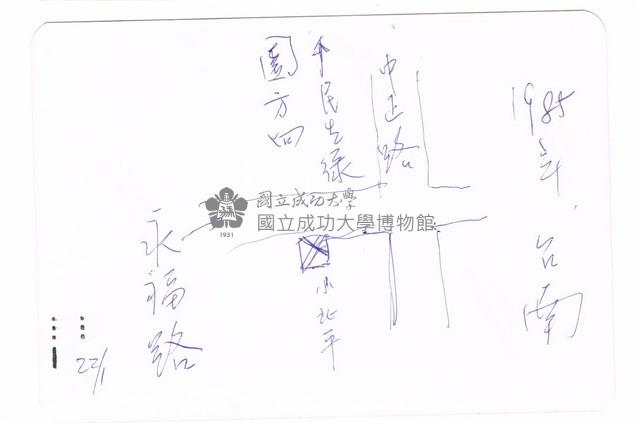 1985年.台南
中正路
民生綠
園方向
小北平
永福路
22/1
國立成功大學
國立成功大學博物館
1931